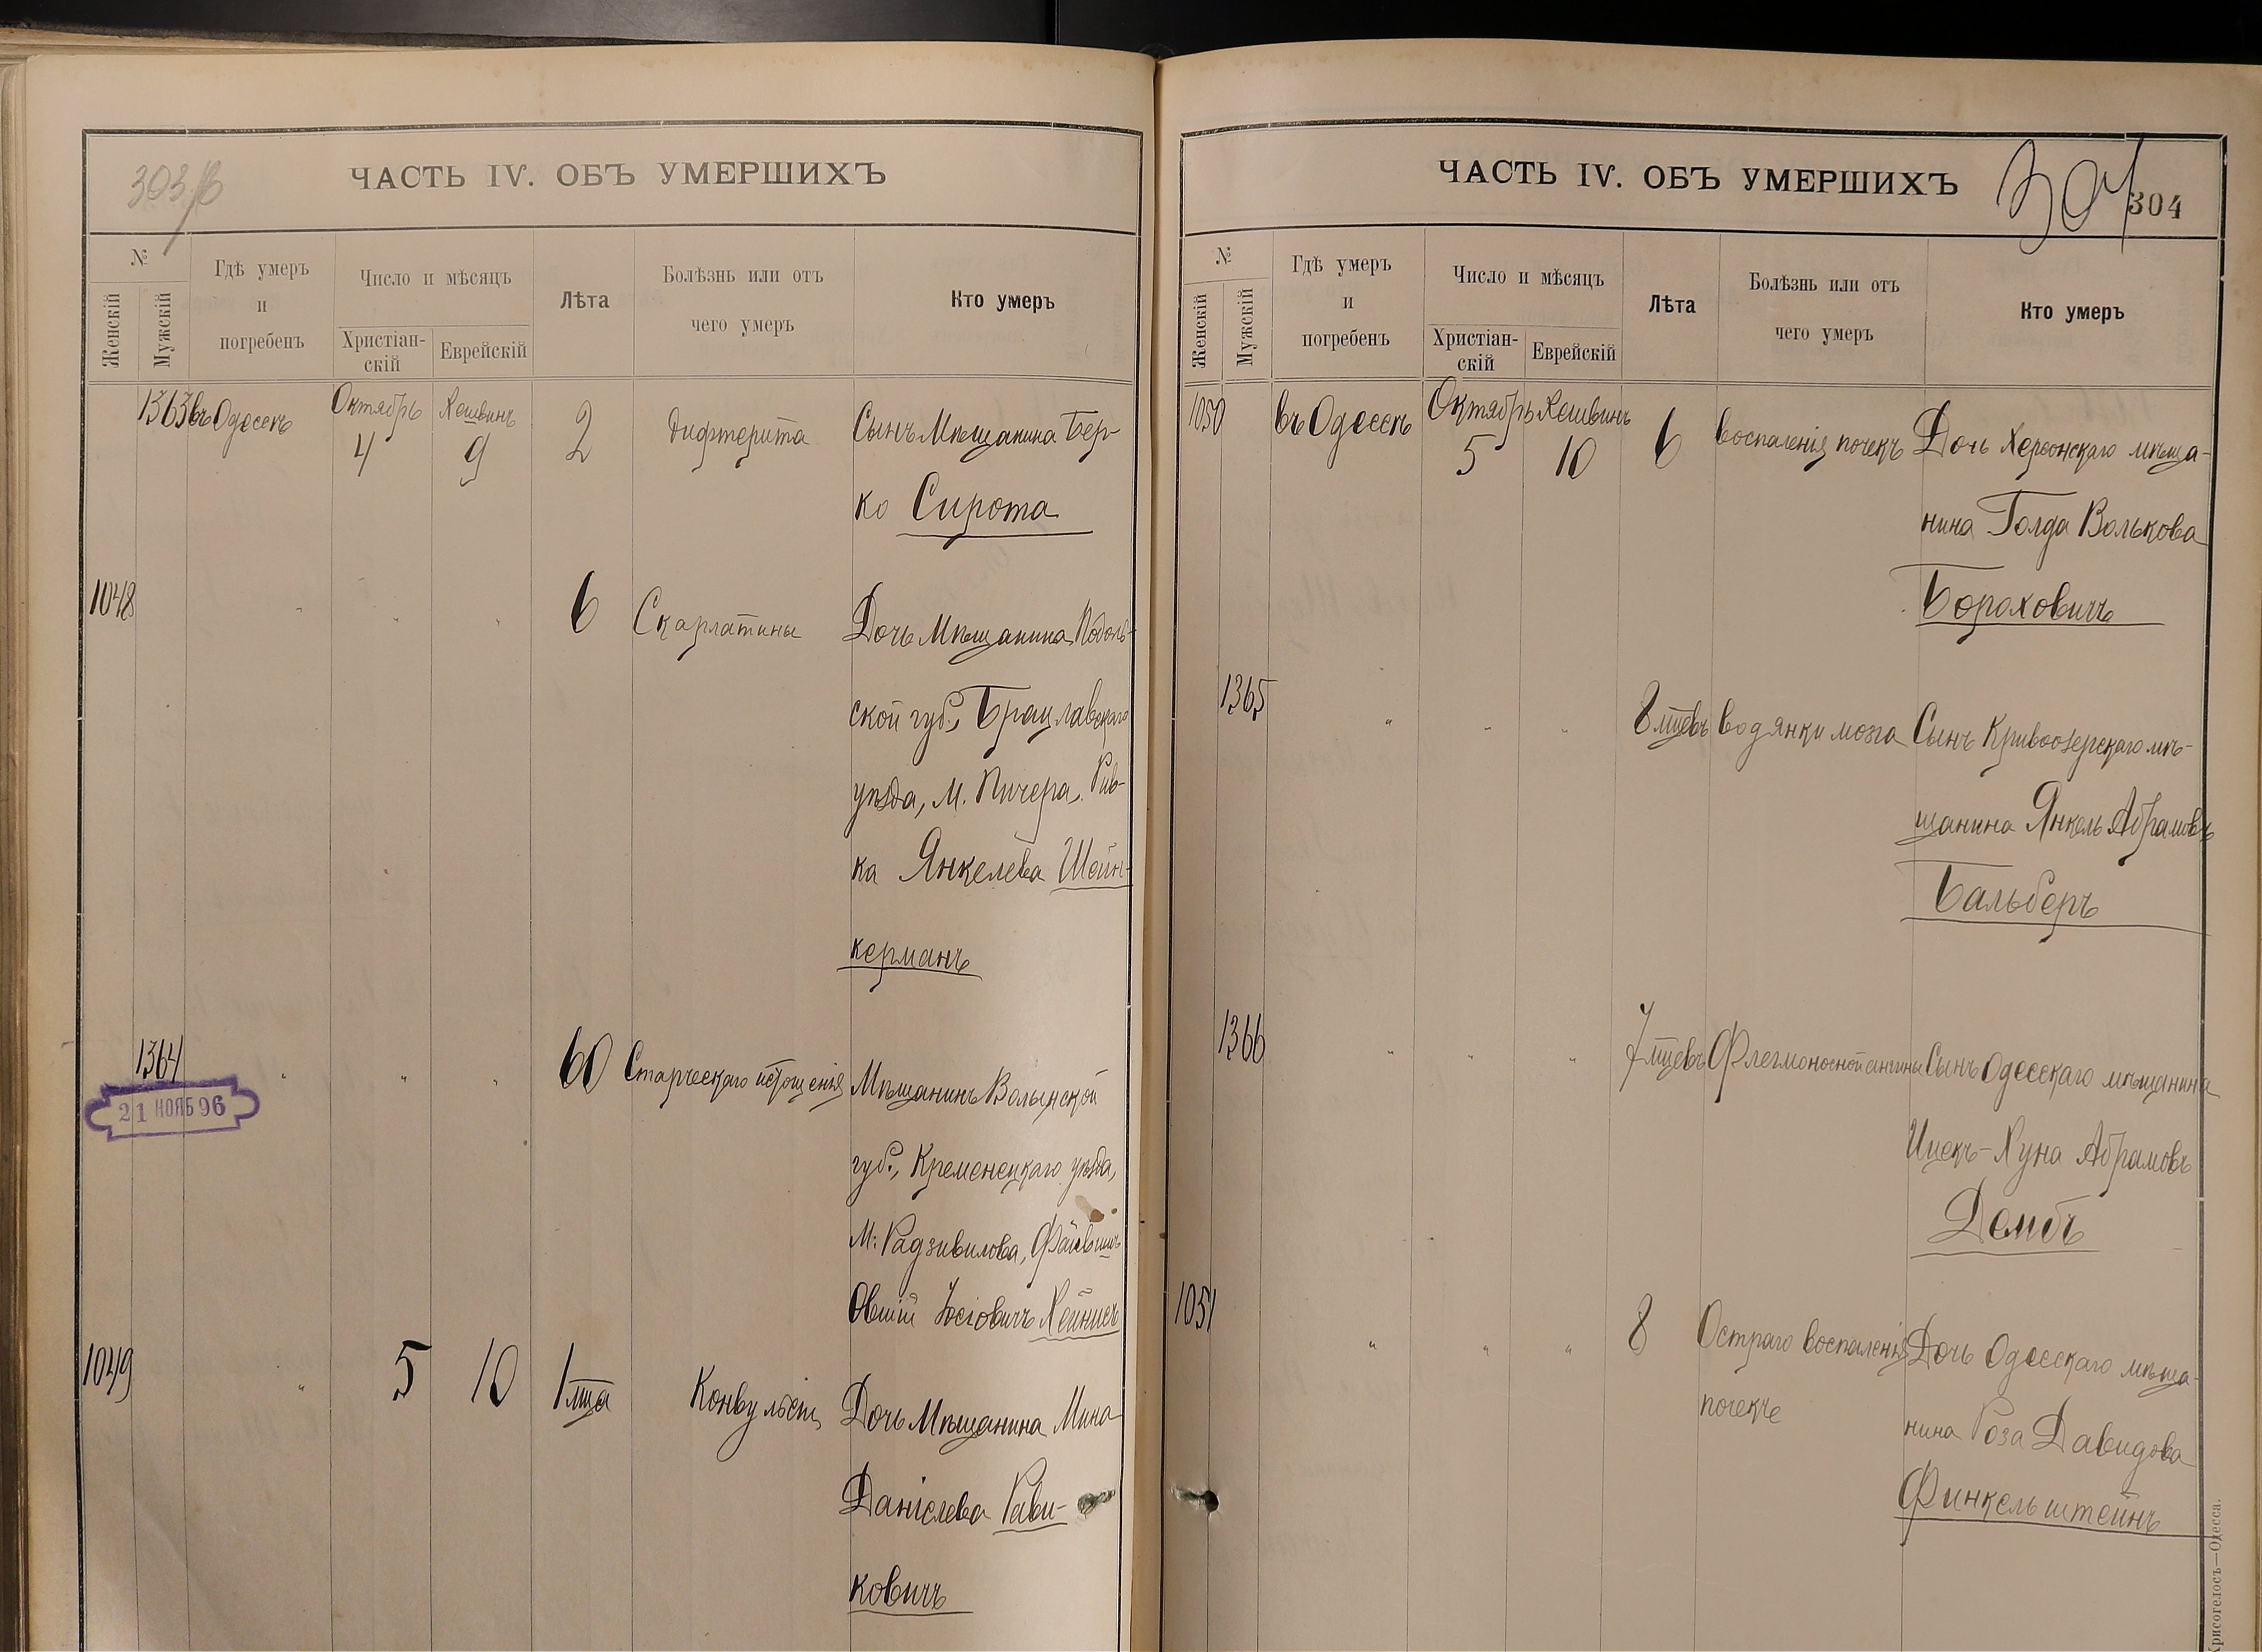 303/В
ЧАСТЬ IV. ОБЪ УМЕРШИХЪ
№
Женскій
Мужскій
Гдѣ умеръ
и
погребенъ
Число и мѣсяцъ
Христіан-
скій
Еврейскій
Лѣта
Болѣзнь или отъ
чего умеръ
Кто умеръ
1363 въ Одессѣ Октябрь 4 Хешвинъ 9 2 дифтерита Сынъ Мѣщанина Бер-
ко Сирота
1048 " " " 6 Скарлатины Дочь Мѣщанина, Подоль-
ской губ., Брацлавскаго
уѣзда, м. Пичера, Рив-
ка Янкелева Шейн-
керманъ
1364 " " " 60 Старческаго истощенія Мѣщанинъ Волынской
21 НОЯБ 96
губ., Кременецкаго уѣзда,
м. Радзивилова, Файвишъ
Овшій Іосіовичъ Хейнисъ
1049 " 5 10 1 мца Конвульсіи Дочь Мѣщанина Мина
Даніелева Раби-
ковичъ
ЧАСТЬ IV. ОБЪ УМЕРШИХЪ
304
304
№
Женскій
Мужскій
Гдѣ умеръ
и
погребенъ
Число и мѣсяцъ
Христіан-
скій
Еврейскій
Лѣта
Болѣзнь или отъ
чего умеръ
Кто умеръ
1050 въ Одессѣ Октябрь 5 Хешвинъ 10 6 воспаленія почекъ Дочь Херсонскаго мѣща-
нина Голда Волькова
Бороховичъ
1365 " " " 8 мцевъ водянки мозга Сынъ Кривоозерскаго мѣ-
щанина Янкель Абрамовъ
Бальберъ
1366 " " " 7 мцевъ Флегмонозной ангины Сынъ Одесскаго мѣщанина
Ицекъ-Хуна Абрамовъ
Дембъ
1051 " " " 8 Остраго воспаленія Дочь Одесскаго мѣща-
почекъ
нина Роза Давидова
Финкельштейнъ
Хрисогелосъ—Одесса.